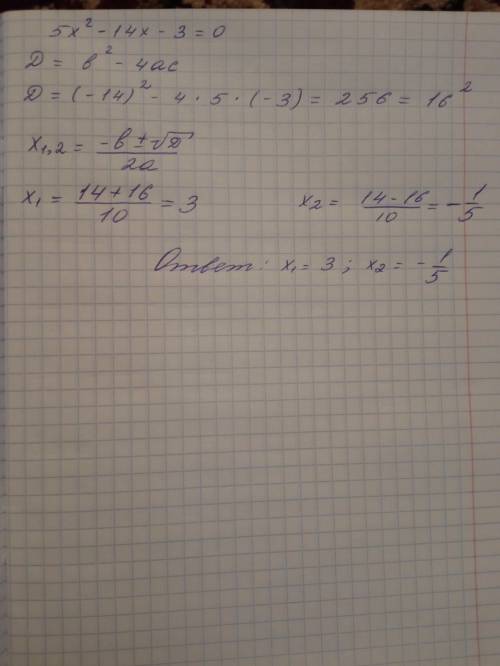 5x² - 14x - 3 = 0
D = b² - 4ac
D = (-14)² - 4 · 5 · (-3) = 256 = 16²
x₁,₂ = (-b ± √D)/2a
x₁ = (14 + 16)/10 = 3    x₂ = (14 - 16)/10 = -1/5
Ответ: x₁ = 3 ; x₂ = -1/5